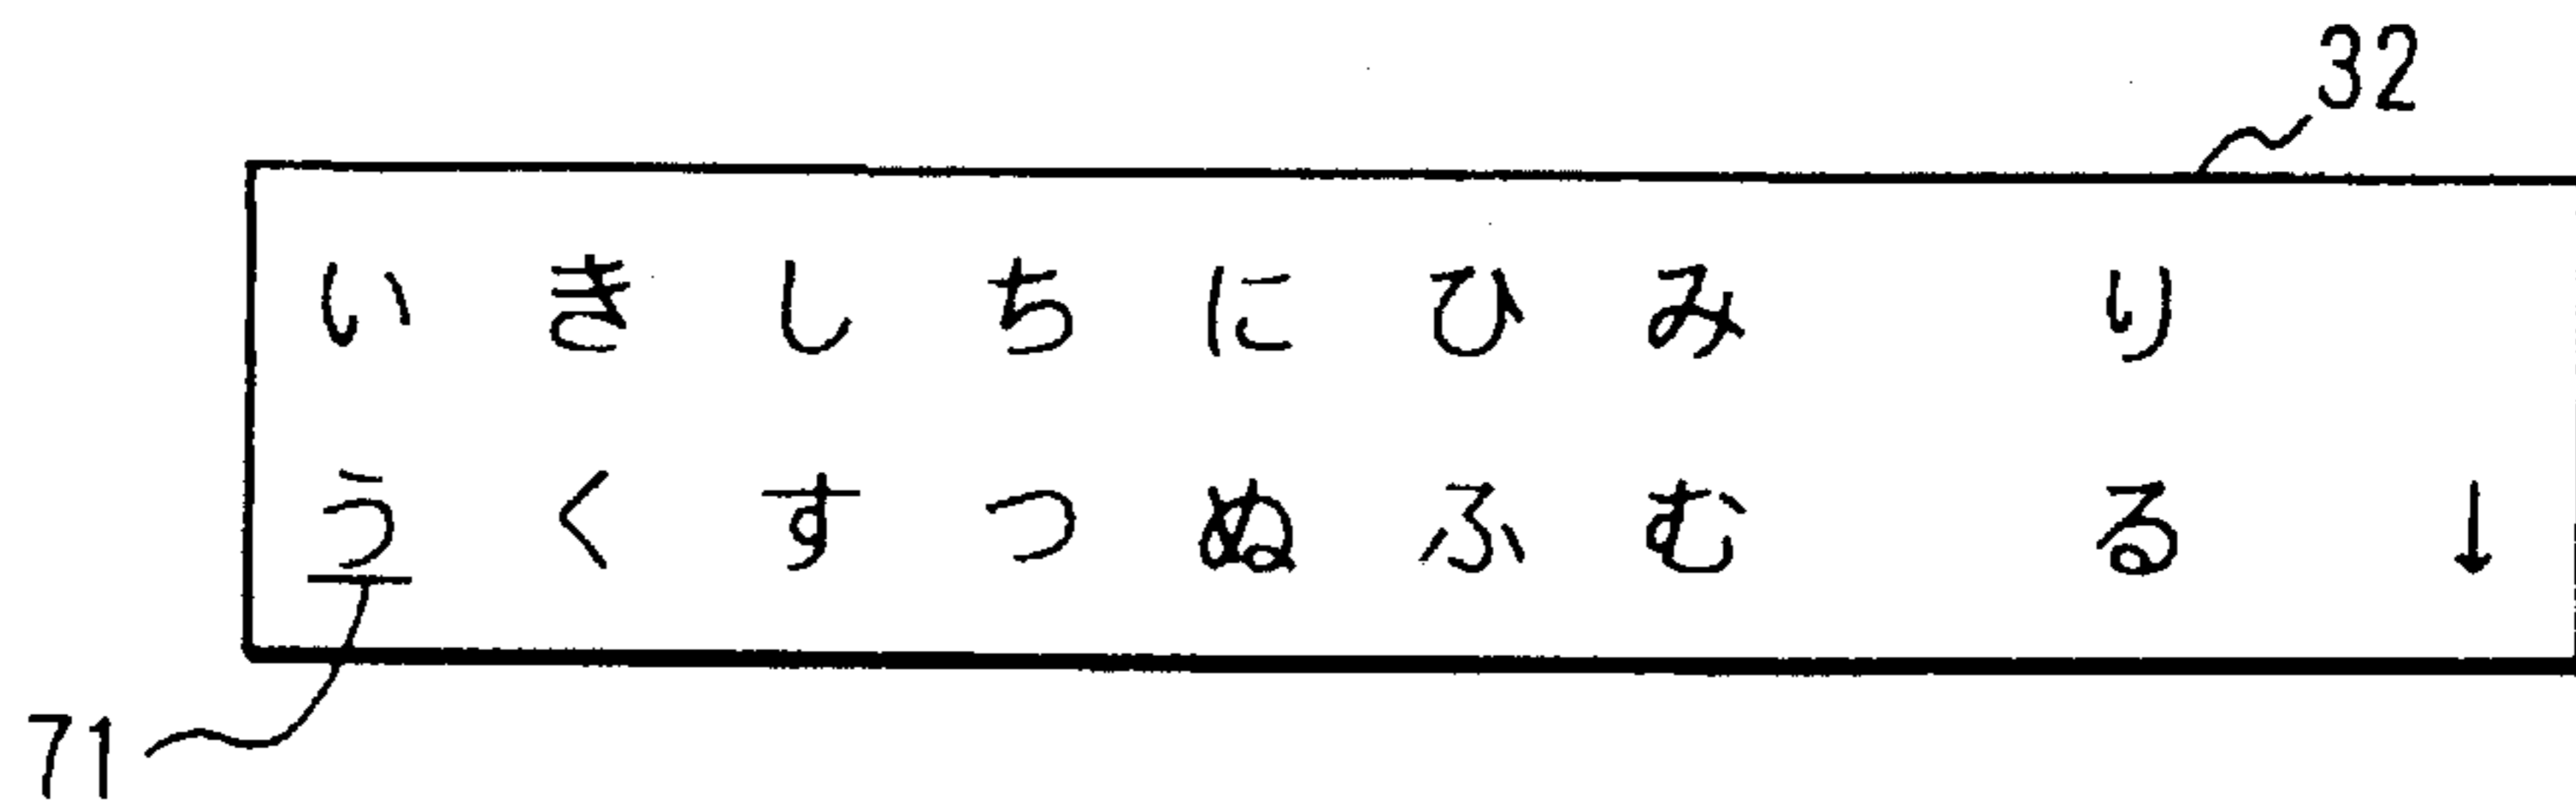 32
い き し ち に ひ み り
う く す つ ぬ ふ む る ↓
71